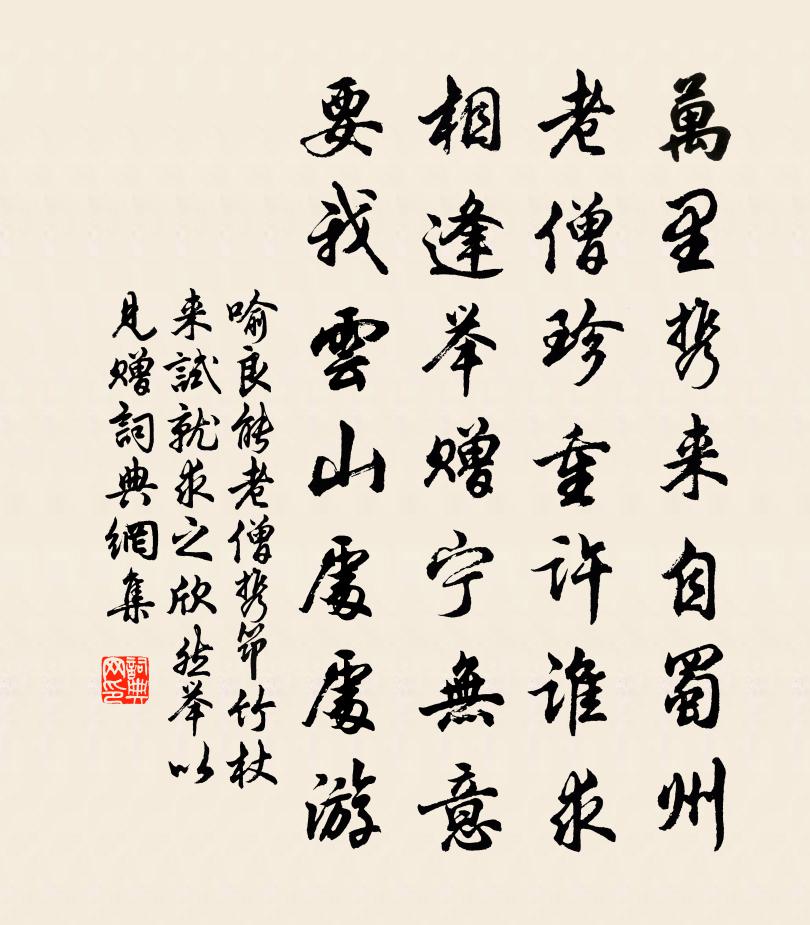 萬里携来自蜀州
老僧珍重许谁求
相逢举赠宁無意
要我雲山處處游
喻良能老僧携筇竹杖
来試就求之欣然举以
見赠詞典網集
詞典网印